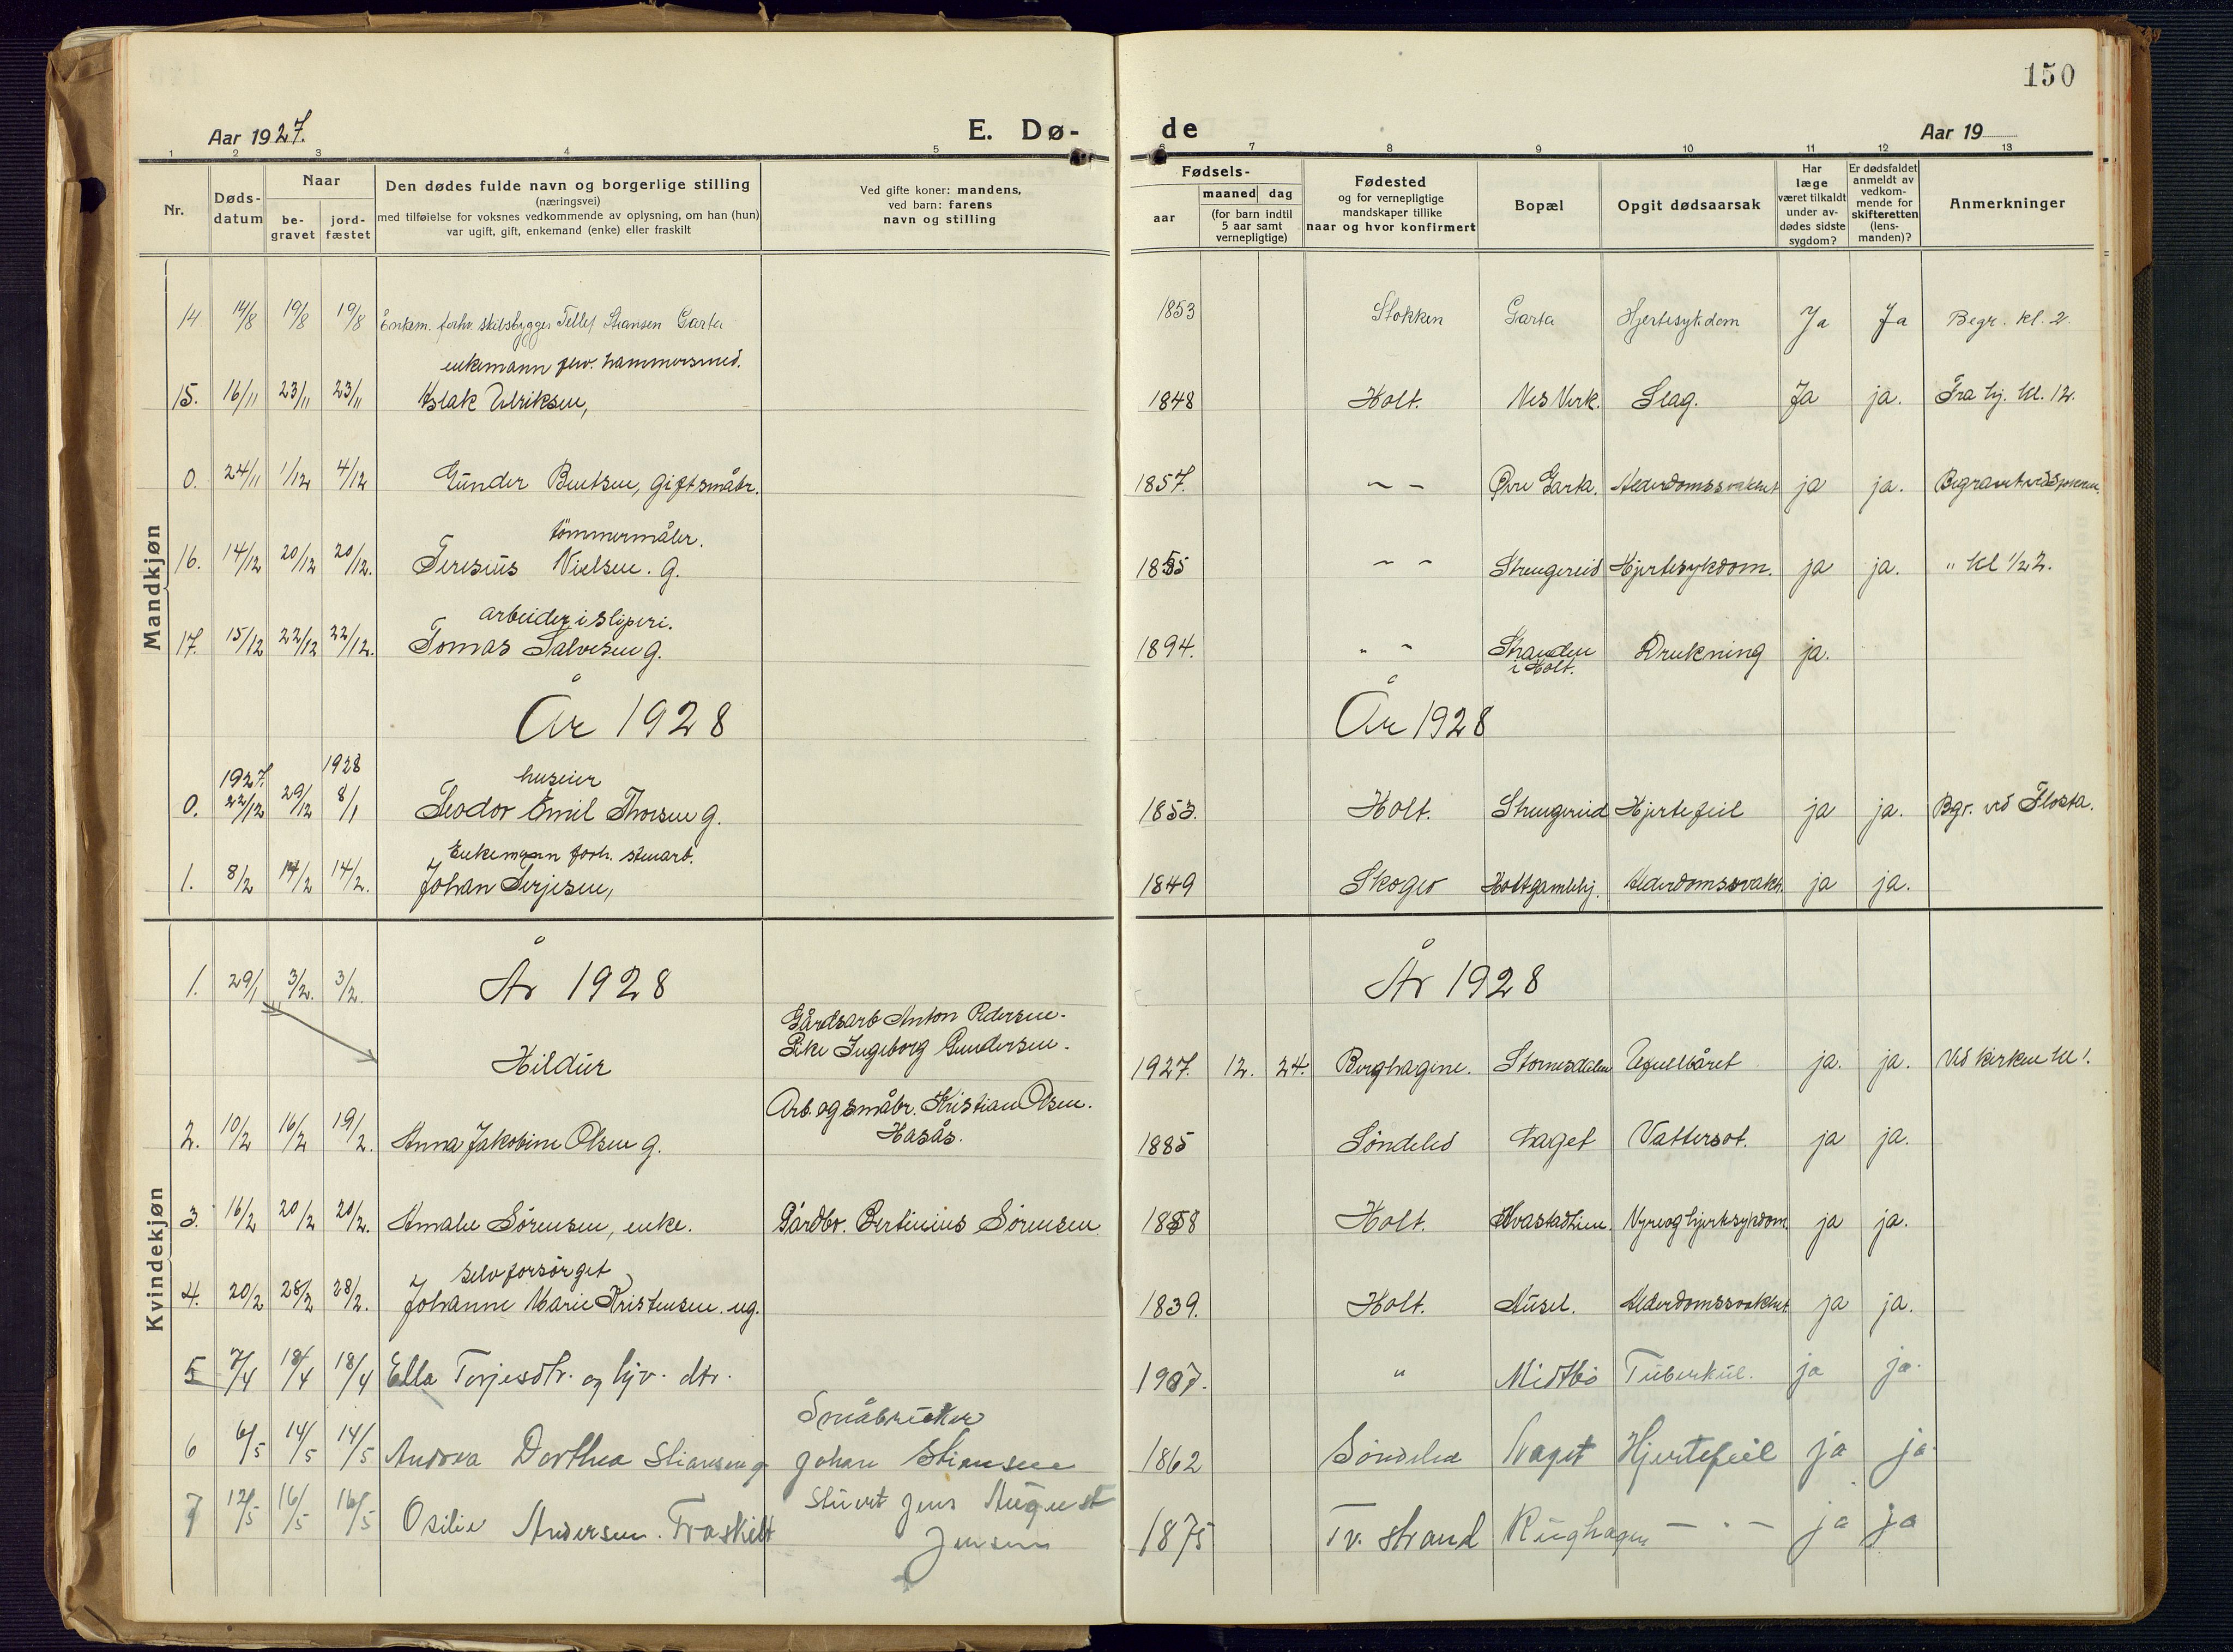 150
Aar 1927.
E. Dø-
de
Aar 19
1 2 3 4 5 6 7 8 9 10 11 12 13
Nr.
Døds-
datum
Naar
be-
gravet
jord-
fæstet
Den dødes fulde navn og borgerlige stilling
(næringsvei)
med tilføielse for voksnes vedkommende av oplysning, om han (hun)
var ugift, gift, enkemand (enke) eller fraskilt
Ved gifte koner: mandens,
ved barn: farens
navn og stilling
Fødsels-
aar
maaned dag
(for barn indtil
5 aar samt
vernepligtige)
Fødested
og for vernepligtige
mandskaper tillike
naar og hvor konfirmert
Bopæl
Opgit dødsaarsak
Har
læge
været tilkaldt
under av-
dødes sidste
sygdom?
Er dødsfaldet
anmeldt av
vedkom-
mende for
skifteretten
(lens-
manden)?
Anmerkninger
Mandkjøn
14 14/8 19/8 19/8 Enkem. forhv. skibsbygger Tellef Stiansen Garta 1853 Stokken Garta Hjertesykdom Ja Ja Begr. kl. 2.
enkemann forv. hammersmed.
15. 16/11 23/11 23/11 Aslak Ulriksen, 1848 Holt. Nes Verk. Slag. Ja ja. Fra hj. kl. 12.
0. 24/11 1/12 4/12 Gunder Bentsen, gift småbr. 1857. " " Øvre Garta. Alderdomssvakhet ja ja.
tömmermåler.
16. 14/12 20/12 20/12. Teresius Nielsen. g. 1855 " " Strengereid Hjertesykdom. ja ja. " kl 1/2 2.
arbeider i sliperi.
17. 15/12 22/12 22/12. Tomas Salvesen g. 1894. " " Stranden Drukning ja.
i Holt.
År 1928 År 1928
1927. 1928
huseier
0. 22/12 29/12 8/1 Teodor Emil Thorsen g. 1853. Holt. Strengereid Hjertefeil ja ja. Bgr. ved Flosta.
Enkemann forh. stenarb.
1. 8/2 14/2 14/2. Johan Terjesen, 1849 Skoger Holt gamlehj. Alderdomssvakh. ja ja.
Kvindekjøn
1. 29/1 3/2. 3/2. År 1928 År 1928
Gårdsarb Anton Pedersen.
Pike Ingeborg Gundersen.
Hildur 1927. 12. 24. Berghagene. Ufullbåret ja. ja. Ved kirken kl 1.
Arb. og småbr. Kristian Olsen.
Hasås.
2. 10/2 16/2 19/2. Anna Jakobine Olsen g. 1885 Söndeled Haget Vattersot. ja ja.
3. 16/2 20/2 20/2. Amalie Sörensen, enke. Gårdbr. Bertinius Sörensen 1858 Holt. Nyre og hjertesykdom ja ja.
selvforsörget
4. 20/2 28/2 28/2. Johanne Marie Kristensen. ug. 1839. Holt. Ausel. Alderdomssvakhet ja ja.
5 7/4 18/4 18/4 Ella Torjesdtr. og hjv. dtr. 1907. " Midtbö Tuberkul. ja ja.
Småbruker
6 6/5 14/5 14/5 Andrea Dorthea Stiansen g Johan Stiansen 1862 Söndeled Haget Hjertefeil ja ja
Stuert Jens August
7 12/5 16/5 16/5 Osilie Andersen. Fraskilt Jensen 1875 Tv. strand Ringhagen — " — ja ja